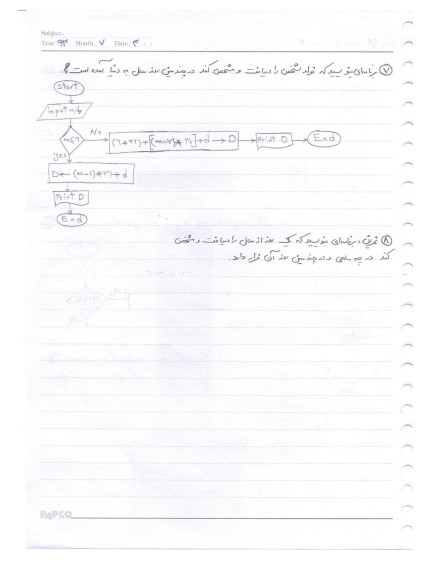 Subject:
Year. ۹۴ Month. ۷ Date. ۴
۷ برنامه‌ای بنویسید که تولد شخص را دریافت و مشخص کند در چندمین روز سال به دنیا آمده است؟
Start
input m,d
m≤6 No (6*31)+[(m-7)*30]+d → D Print D End
yes
D ← (m-1)*31+d
Print D
End
۸ تمرین: برنامه‌ای بنویسید که یک روز از سال را دریافت و مشخص
کند در چه ماهی و در چندمین روز آن قرار دارد.
PAPCO